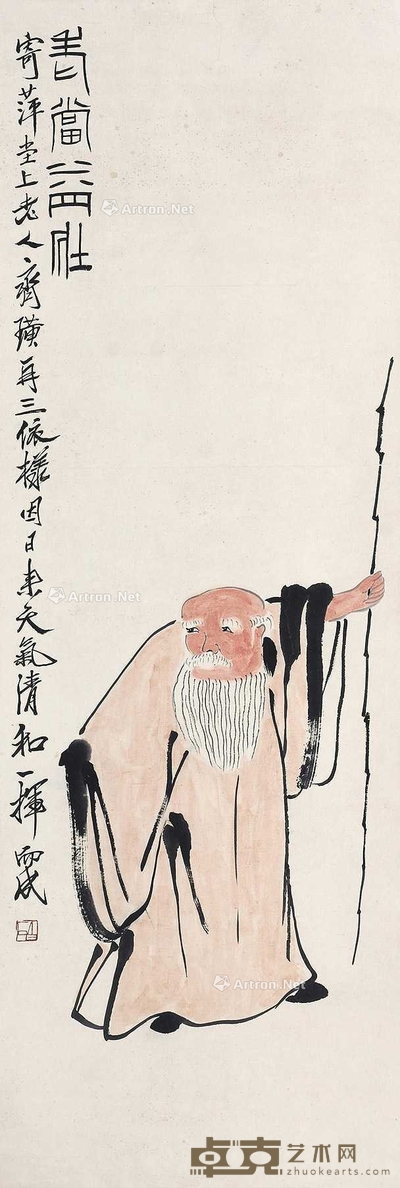 老當益壯
寄萍堂上老人齊璜再三依樣因日來天氣清和一揮而成
Artron.Net
Artron.Net
Artron.Net
Artron.Net
卓克艺术网
zhuokearts.com